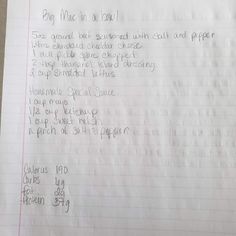 Big Mac in a bowl!
5oz ground beef seasoned with salt and pepper
shredded cheddar cheese
1 oz pickle spears chopped
2 tbsp thousand island dressing
2 cup shredded lettuce
Handmade Special Sauce
1 cup mayo
1/3 cup ketchup
1 cup sweet relish
a pinch of salt & pepper
Calories 190
Carbs 4g
fat
Protein 37g